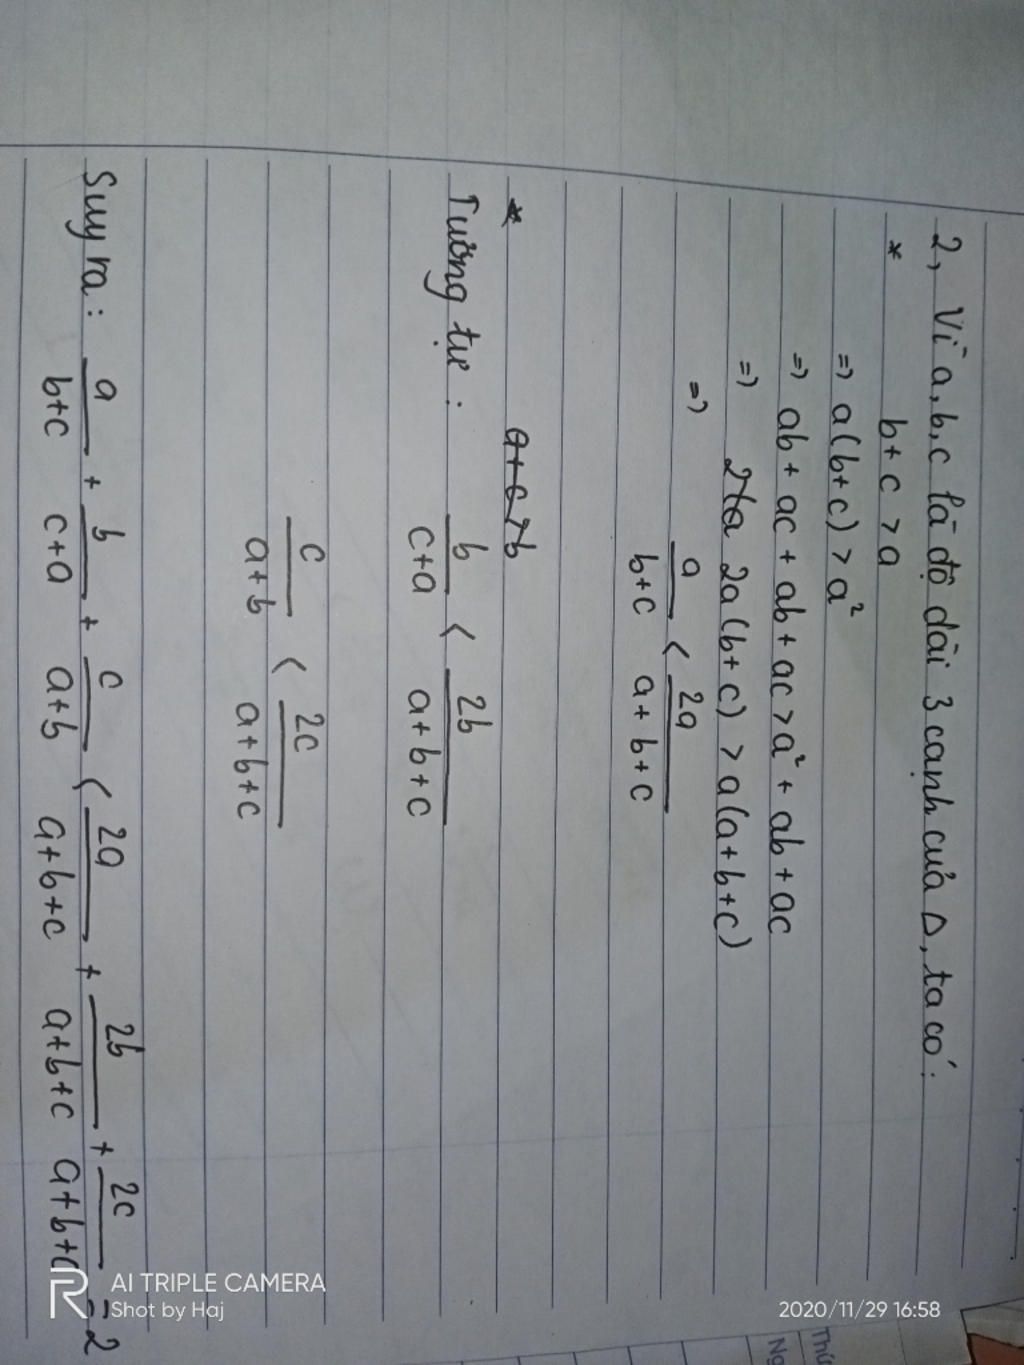 2, Vì a, b, c là độ dài 3 cạnh của Δ, ta có:
* b + c > a
=> a(b+c) > a²
=> ab + ac + ab + ac > a² + ab + ac
=> 2a(b+c) > a(a+b+c)
=> a/(b+c) < 2a/(a+b+c)
* a+c>b
Tương tự : b/(c+a) < 2b/(a+b+c)
c/(a+b) < 2c/(a+b+c)
Suy ra: a/(b+c) + b/(c+a) + c/(a+b) < 2a/(a+b+c) + 2b/(a+b+c) + 2c/(a+b+c) = 2
AI TRIPLE CAMERA
Shot by Haj
2020/11/29 16:58